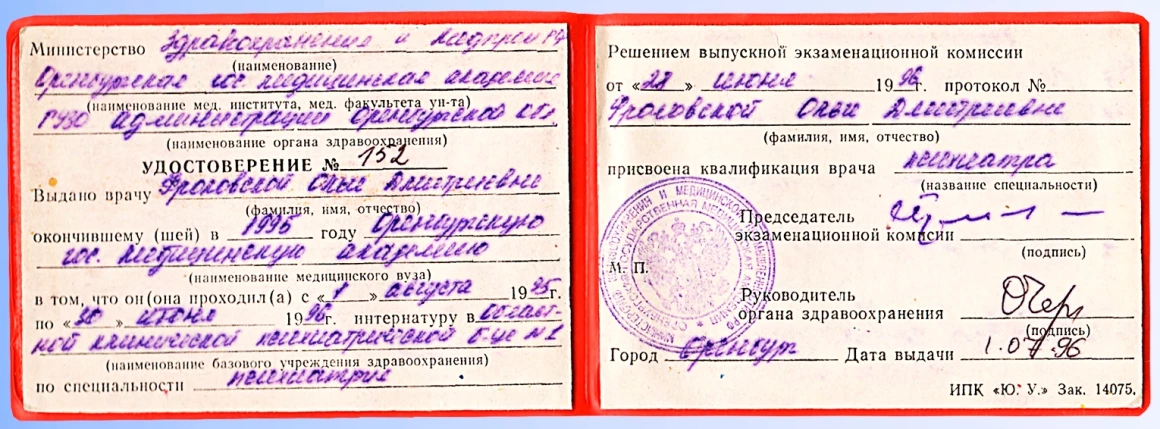 Министерство Здравоохранения и медпром РФ
(наименование)
Оренбургская гос. медицинская академия
(наименование мед. института, мед. факультета ун-та)
ГУЗО администрации Оренбургской обл.
(наименование органа здравоохранения)
УДОСТОВЕРЕНИЕ № 152
Выдано врачу Фроловской Ольге Дмитриевне
(фамилия, имя, отчество)
окончившему (шей) в 1995 году Оренбургскую
гос. медицинскую академию
(наименование медицинского вуза)
в том, что он(она проходил(а) с «1» августа 1995г.
по «30» июня 1996г. интернатуру в област-
ной клинической психиатрической б-це №1
(наименование базового учреждения здравоохранения)
по специальности психиатрия
Решением выпускной экзаменационной комиссии
от «28» июня 1996г. протокол №
Фроловской Ольге Дмитриевне
(фамилия, имя, отчество)
присвоена квалификация врача психиатра
(название специальности)
Председатель
экзаменационной комиссии
(подпись)
М. П.
Руководитель
органа здравоохранения
(подпись)
Город Оренбург Дата выдачи 1.07.96
ИПК «Ю. У.» Зак. 14075.